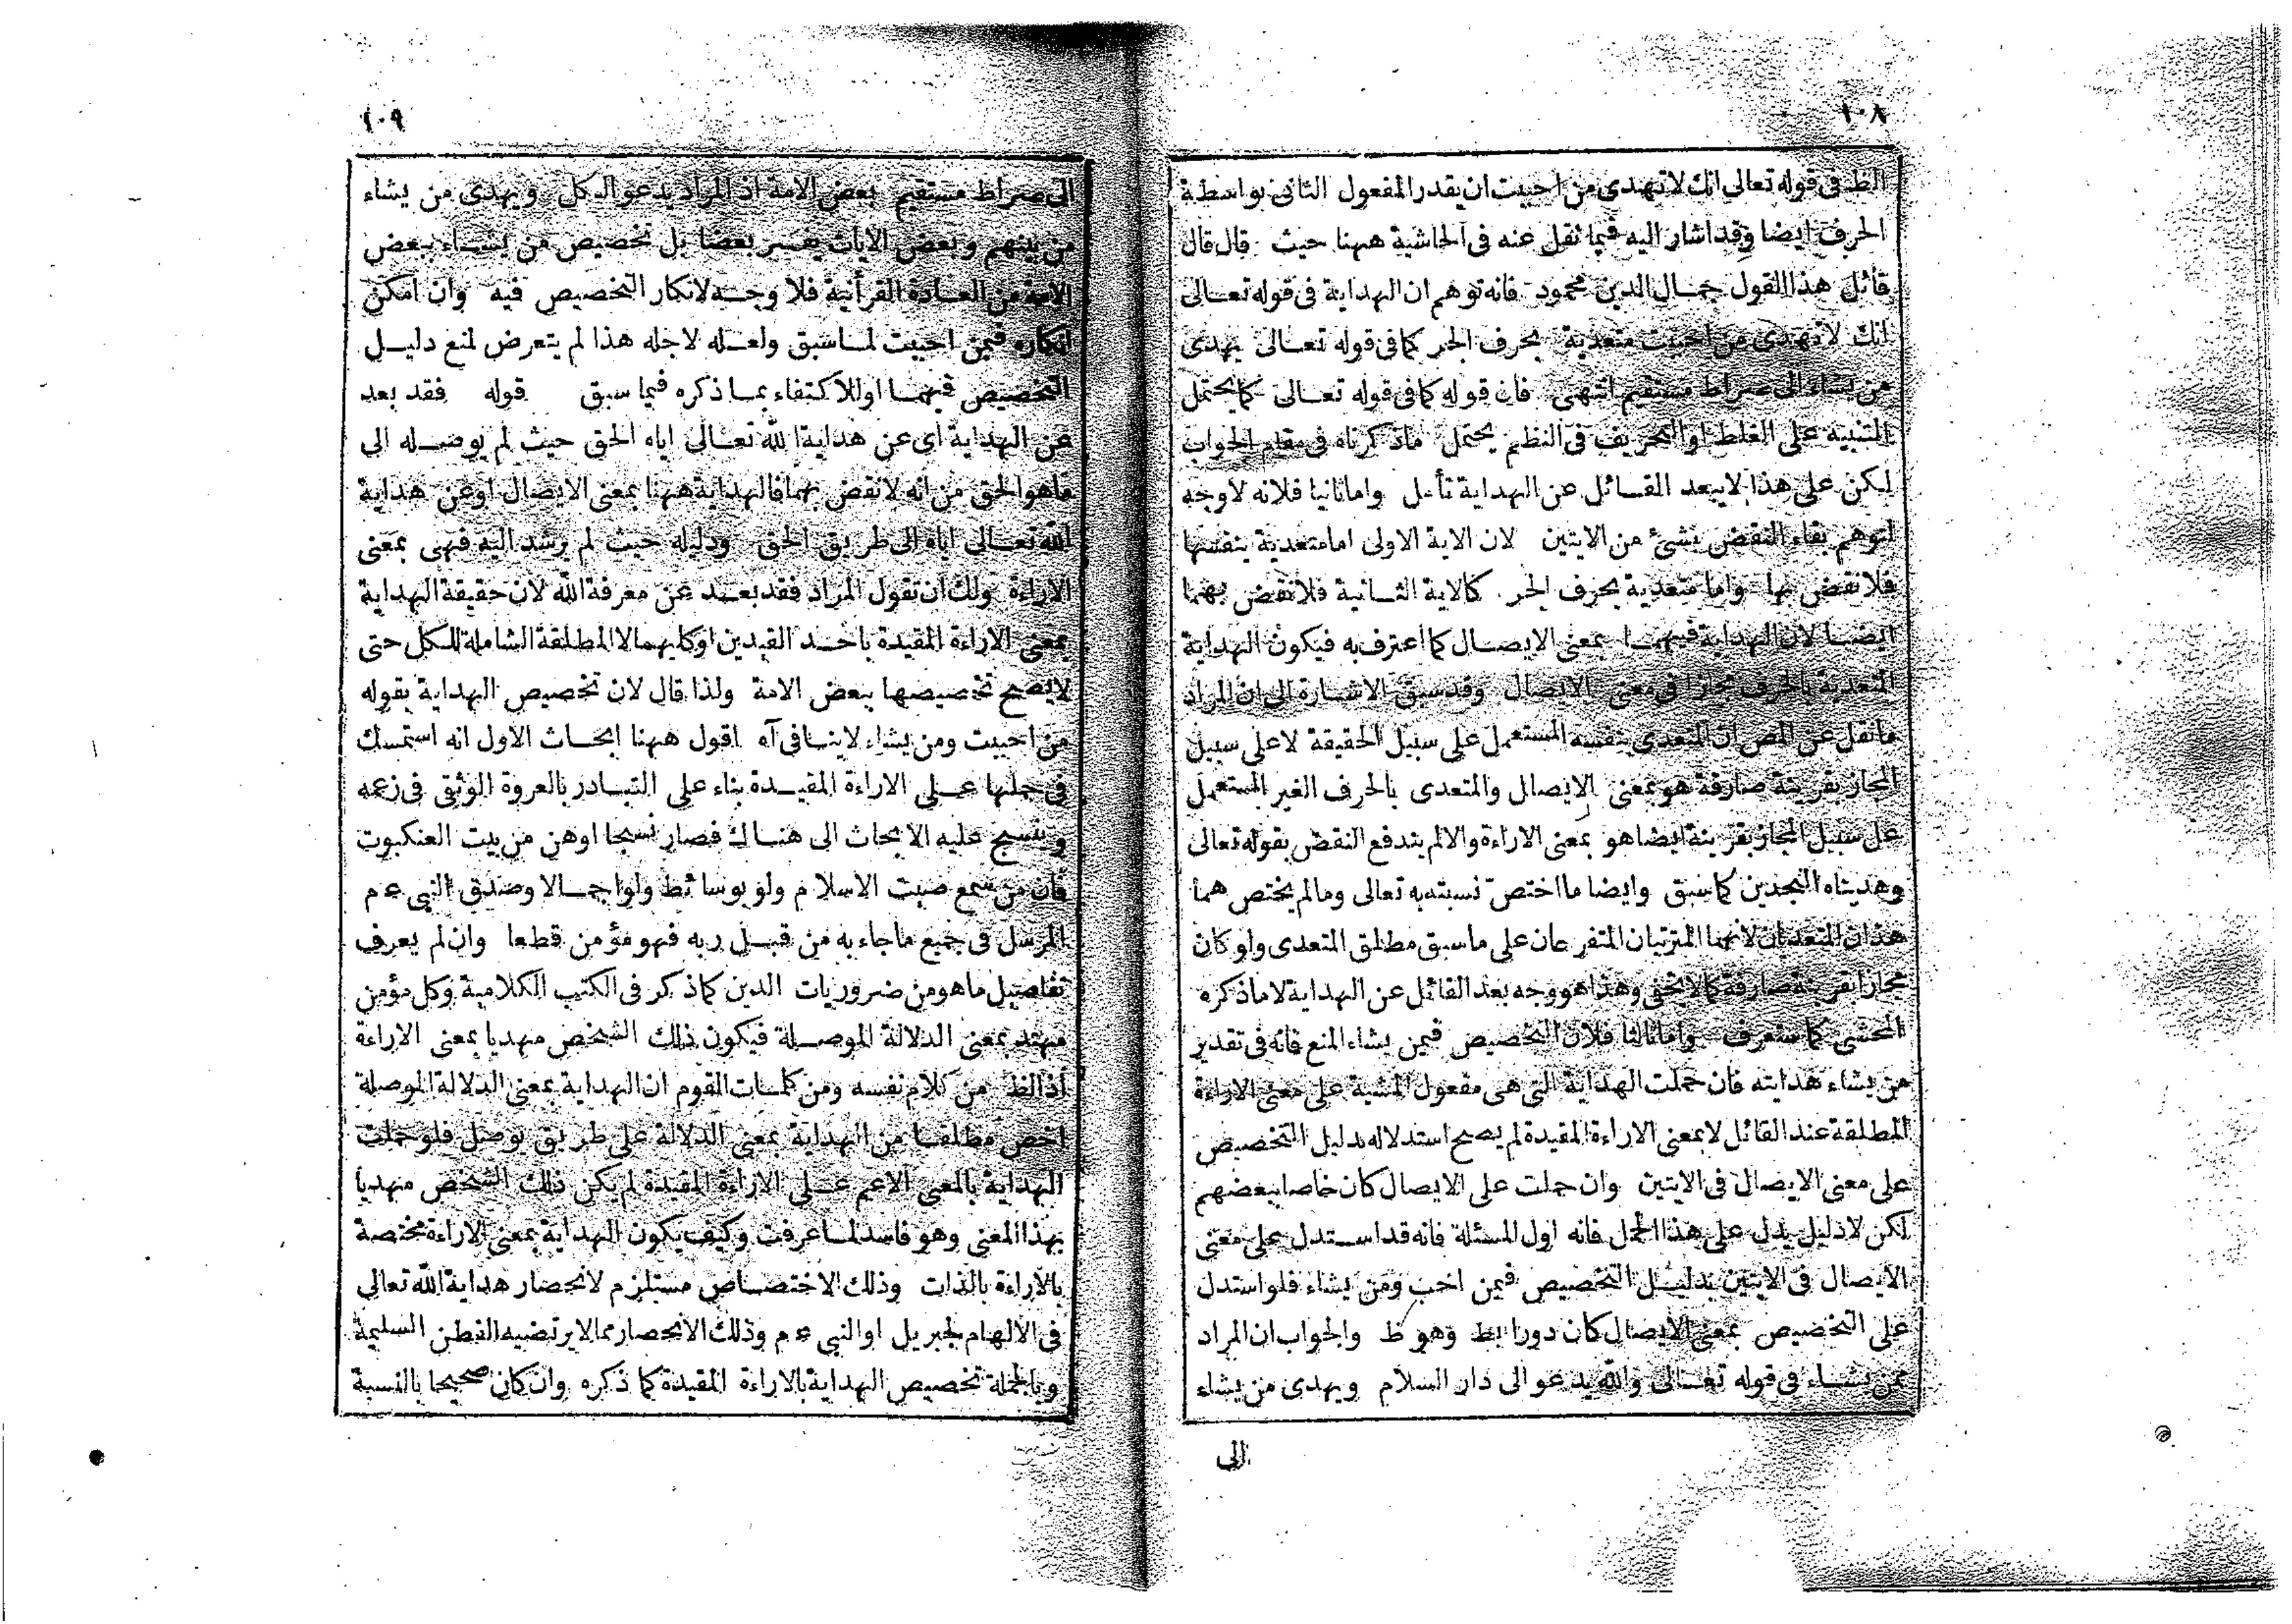 ١٠٨
الظ فى قوله تعالى انك لاتهدى من احببت ان يقدر المفعول الثانى بواسطة
الحرف ايضا وقد اشار اليه فيما نقل عنه فى الحاشية ههنا حيث قال قال
قائل هذا القول جمال الدين محمود فانه توهم ان الهداية فى قوله تعالى
انك لاتهدى من احببت متعدية بحرف الجر كما فى قوله تعالى يهدى
من يشاء الى صراط مستقيم انتهى فان قوله كما فى قوله تعالى كما يحتمل
التنبيه على الغلط او التحريف فى النظم يحتمل ماذكرناه فى مقام الجواب
ليكن على هذا لايبعد القائل عن الهداية تأمل واما ثانيا فلانه لاوجه
لتوهم بقاء النقض بشئ من الايتين لان الاية الاولى اما متعدية بنفسها
فلا نقض بها واما متعدية بحرف الجر كالاية الثانية فلا نقض بهما
ايضا لان الهداية فيهما بمعنى الايصال كما اعترف به فيكون الهداية
المتعدية بالحرف مجازا فى معنى الايصال وقد سبق الاشارة الى ان المراد
مانقل عن المص ان المتعدى بنفسه المستعمل على سبيل الحقيقة لا على سبيل
المجاز بقرينة صارفة هو بمعنى الايصال والمتعدى بالحرف الغير المستعمل
على سبيل المجاز بقرينة ايضا هو بمعنى الاراءة والا لم يندفع النقض بقوله تعالى
وهديناه النجدين كما سبق وايضا ما اختص نسبته به تعالى ومالم يختص هما
هذان المتعديان لانهما المترتبان المتفرعان على ماسبق مطلق المتعدى ولو كان
مجازا بقرينة صارفة كما لا يخفى وهذا هو وجه بعد القائل عن الهداية لا ماذكره
المحشى كما ستعرف واما ثالثا فلان التخصيص فيمن يشاء المنع فانه فى تقدير
من يشاء هدايته فان حملت الهداية التى هى مفعول المشية على معنى الاراءة
المطلقة عند القائل لا بمعنى الاراءة المقيدة لم يصح استدلاله بدليل التخصيص
على معنى الايصال فى الايتين وان حملت على الايصال كان خاصا ببعضهم
لكن لا دليل يدل على هذا الحمل فانه اول المسئلة فانه قد استدل على معنى
الايصال فى الايتين بدليل التخصيص فيمن احب ومن يشاء فلو استدل
على التخصيص بمعنى الايصال كان دورا بط وهو ظ والجواب ان المراد
ممن يشاء فى قوله تعالى والله يدعو الى دار السلام ويهدى من يشاء
الى
١٠٩
الى صراط مستقيم بعض الامة اذ المراد يدعو الكل ويهدى من يشاء
من بينهم وبعض الايات يفسر بعضا بل تخصيص من يشاء ببعض
الامة من العادة القرأنية فلا وجه لانكار التخصيص فيه وان امكن
انكاره فيمن احببت لما سبق ولعله لاجله هذا لم يتعرض لمنع دليل
التخصيص فيهما او للاكتفاء بما ذكره فيما سبق قوله فقد بعد
عن الهداية اى عن هداية الله تعالى اياه الحق حيث لم يوصله الى
ماهو الحق من انه لانقض بهما فالهداية ههنا بمعنى الايصال او عن هداية
الله تعالى اياه الى طريق الحق ودليله حيث لم يرشد اليه فهى بمعنى
الاراءة ولك ان تقول المراد فقد بعد عن معرفة الله لان حقيقة الهداية
بمعنى الاراءة المقيدة باحد القيدين او كليهما لا المطلقة الشاملة للكل حتى
لايصح تخصيصها ببعض الامة ولذا قال لان تخصيص الهداية بقوله
من احببت ومن يشاء لاينافى آه اقول ههنا ابحاث الاول انه استمسك
فى حملها على الاراءة المقيدة بناء على التبادر بالعروة الوثقى فى زعمه
وينسج عليه الابحاث الى هناك فصار نسجا اوهن من بيت العنكبوت
فان من سمع صيت الاسلام ولو بوسائط ولو اجمالا وصدق النبى ءم
المرسل فى جميع ماجاء به من قبل ربه فهو مؤمن قطعا وان لم يعرف
تفاصيل ماهو من ضروريات الدين كما ذكر فى الكتب الكلامية وكل مؤمن
مهتد بمعنى الدلالة الموصلة فيكون ذلك الشخص مهديا بمعنى الاراءة
اذ الظ من كلام نفسه ومن كلمات القوم ان الهداية بمعنى الدلالة الموصلة
اخص مطلقا من الهداية بمعنى الدلالة على طريق يوصل فلو حملت
الهداية بالمعنى الاعم على الاراءة المقيدة لم يكن ذلك الشخص مهديا
بهذا المعنى وهو فاسد لما عرفت وكيف يكون الهداية بمعنى الاراءة مختصة
بالاراءة بالذات وذلك الاختصاص مستلزم لانحصار هداية الله تعالى
فى الالهام لجبريل او النبى ءم وذلك الانحصار مما لا يرتضيه الفطن السليمة
وبالجملة تخصيص الهداية بالاراءة المقيدة كما ذكره وان كان صحيحا بالنسبة